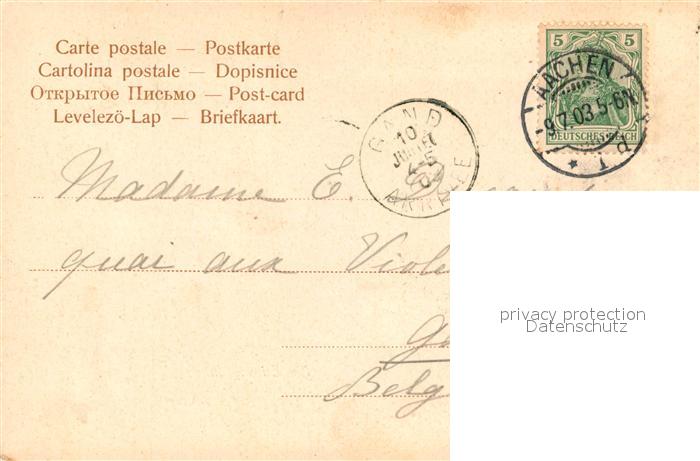 Carte postale — Postkarte
Cartolina postale — Dopisnice
Открытое Письмо — Post-card
Levelezö-Lap — Briefkaart.
5 5
DEUTSCHES REICH
AACHEN
-9.7.03.5-6N.
* 1 d
GAND
10
JUILLET
4-5
Madame E.
quai aux Viole
Ga
Belg
privacy protection
Datenschutz